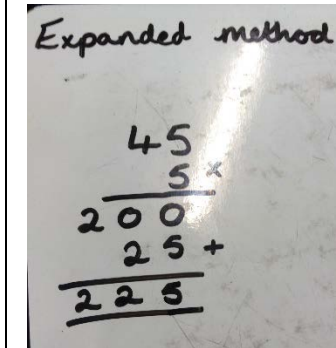 Expanded method
45
5 ×
200
25 +
225